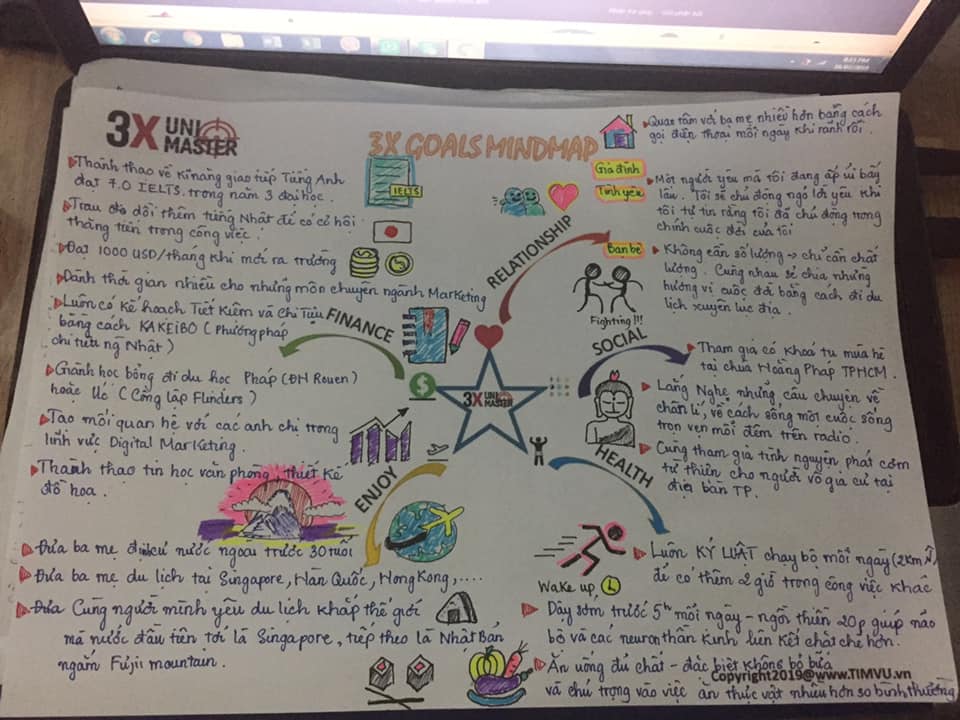 3X UNI MASTER
3X GOALS MINDMAP
Thành thạo về kĩ năng giao tiếp Tiếng Anh
đạt 7.0 IELTS trong năm 3 đại học.
Trau dồi thêm tiếng Nhật để có cơ hội
thăng tiến trong công việc.
Đạt 1000 USD/tháng khi mới ra trường
Dành thời gian nhiều cho những môn chuyên ngành Marketing
Luôn có kế hoạch Tiết Kiệm và Chi Tiêu
bằng cách KAKEIBO (Phương pháp
chi tiêu ng Nhật)
Giành học bổng đi du học Pháp (ĐH Rouen)
hoặc Úc (Công lập Flinders)
Tạo mối quan hệ với các anh chị trong
lĩnh vực Digital Marketing.
Thành thạo tin học văn phòng, thiết kế
đồ họa.
IELTS
FINANCE
RELATIONSHIP
Gia đình
Tình yêu
Bạn bè
Quan tâm với ba mẹ nhiều hơn bằng cách
gọi điện thoại mỗi ngày khi rảnh rỗi.
Một người yêu mà tôi đang ấp ủ bấy
lâu. Tôi sẽ chủ động ngỏ lời yêu khi
tôi tự tin rằng tôi đã chủ động trong
chính cuộc đời của tôi
Không cần số lượng → chỉ cần chất
lượng. Cùng nhau sẻ chia những
hương vị cuộc đời bằng cách đi du
lịch xuyên lục địa.
Fighting!!!
SOCIAL
Tham gia có khoá tu mùa hè
tại chùa Hoằng Pháp TPHCM.
Lắng Nghe những câu chuyện về
chân lí, về cách sống một cuộc sống
trọn vẹn mỗi đêm trên radio.
Cùng tham gia tình nguyện phát cơm
từ thiện cho người vô gia cư tại
địa bàn TP.
3X UNI MASTER
HEALTH
Wake up
Luôn KỶ LUẬT chạy bộ mỗi ngày (2km
để có thêm 2 giờ trong công việc khác
Dậy sớm trước 5h mỗi ngày - ngồi thiền 20p giúp não
bộ và các neuron thần kinh liên kết chặt chẽ hơn.
Ăn uống đủ chất - đặc biệt không bỏ bữa
và chú trọng vào việc ăn thực vật nhiều hơn so bình thường
ENJOY
Đưa ba mẹ định cư nước ngoài trước 30 tuổi
Đưa ba mẹ du lịch tại Singapore, Hàn Quốc, Hong Kong,....
Đưa Cùng người mình yêu du lịch khắp thế giới
mà nước đầu tiên tới là Singapore, tiếp theo là Nhật Bản
ngắm Fujii mountain.
Copyright2019@www.TIMVU.vn